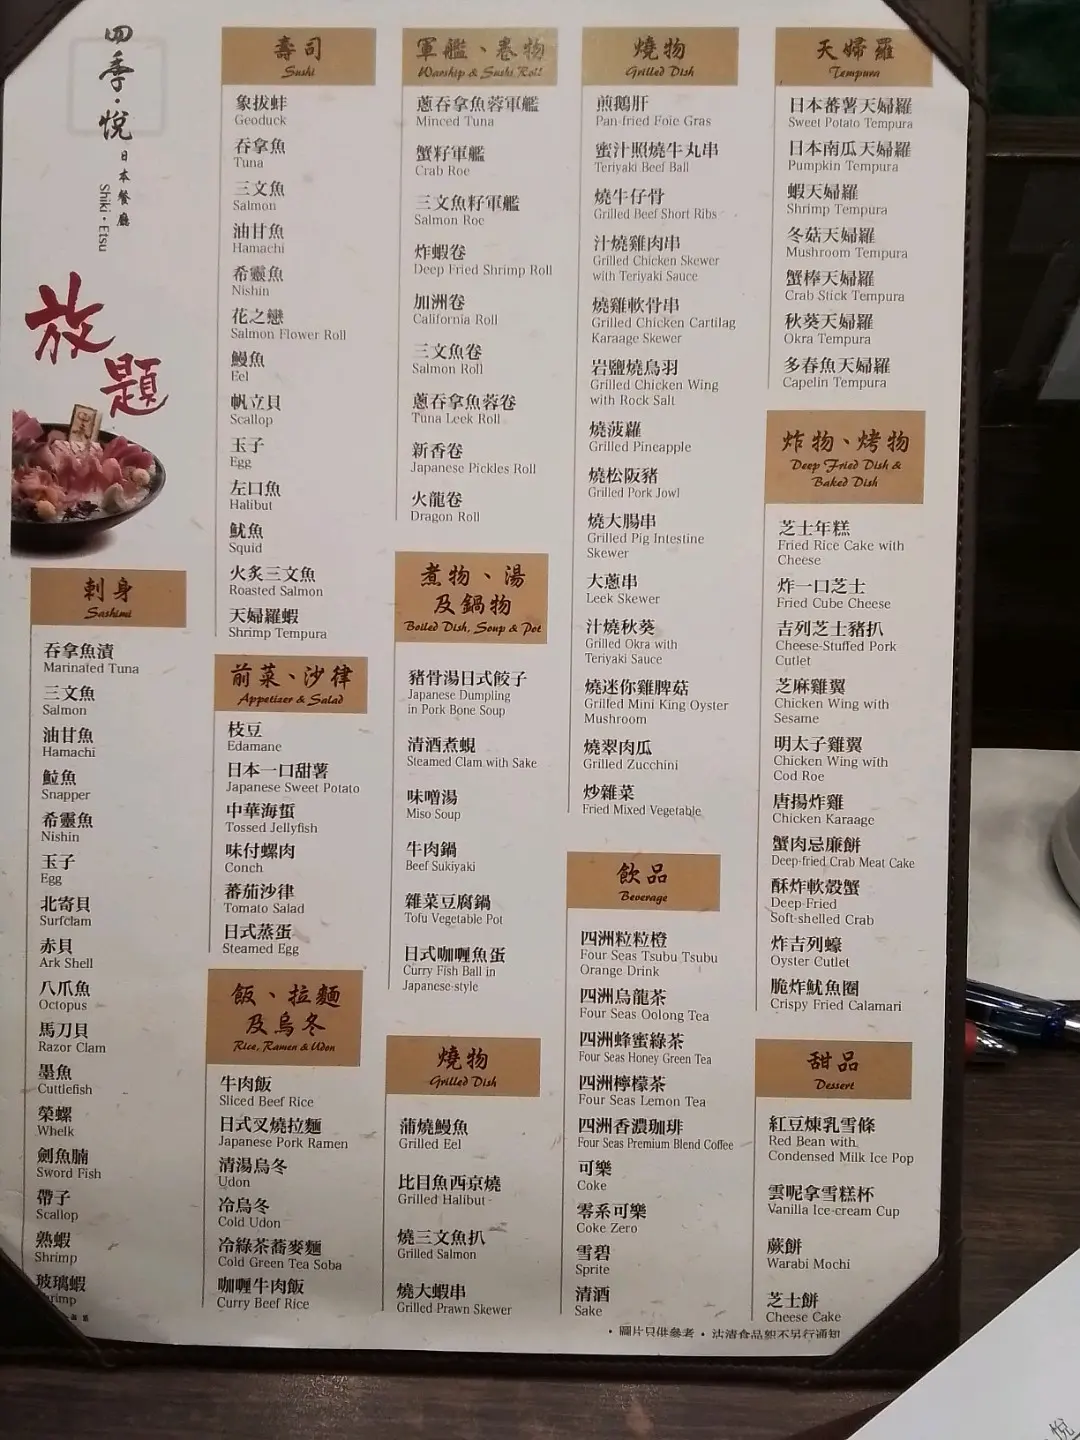 四季·悅
日本餐廳
Shiki·Etsu
放題
刺身
Sashimi
吞拿魚漬
Marinated Tuna
三文魚
Salmon
油甘魚
Hamachi
鱲魚
Snapper
希靈魚
Nishin
玉子
Egg
北寄貝
Surfclam
赤貝
Ark Shell
八爪魚
Octopus
馬刀貝
Razor Clam
墨魚
Cuttlefish
榮螺
Whelk
劍魚腩
Sword Fish
帶子
Scallop
熟蝦
Shrimp
玻璃蝦
Shrimp
壽司
Sushi
象拔蚌
Geoduck
吞拿魚
Tuna
三文魚
Salmon
油甘魚
Hamachi
希靈魚
Nishin
花之戀
Salmon Flower Roll
鰻魚
Eel
帆立貝
Scallop
玉子
Egg
左口魚
Halibut
魷魚
Squid
火炙三文魚
Roasted Salmon
天婦羅蝦
Shrimp Tempura
前菜、沙律
Appetizer & Salad
枝豆
Edamane
日本一口甜薯
Japanese Sweet Potato
中華海蜇
Tossed Jellyfish
味付螺肉
Conch
蕃茄沙律
Tomato Salad
日式蒸蛋
Steamed Egg
飯、拉麵
及烏冬
Rice, Ramen & Udon
牛肉飯
Sliced Beef Rice
日式叉燒拉麵
Japanese Pork Ramen
清湯烏冬
Udon
冷烏冬
Cold Udon
冷綠茶蕎麥麵
Cold Green Tea Soba
咖喱牛肉飯
Curry Beef Rice
軍艦、卷物
Warship & Sushi Roll
蔥吞拿魚蓉軍艦
Minced Tuna
蟹籽軍艦
Crab Roe
三文魚籽軍艦
Salmon Roe
炸蝦卷
Deep Fried Shrimp Roll
加洲卷
California Roll
三文魚卷
Salmon Roll
蔥吞拿魚蓉卷
Tuna Leek Roll
新香卷
Japanese Pickles Roll
火龍卷
Dragon Roll
煮物、湯
及鍋物
Boiled Dish, Soup & Pot
豬骨湯日式餃子
Japanese Dumpling
in Pork Bone Soup
清酒煮蜆
Steamed Clam with Sake
味噌湯
Miso Soup
牛肉鍋
Beef Sukiyaki
雜菜豆腐鍋
Tofu Vegetable Pot
日式咖喱魚蛋
Curry Fish Ball in
Japanese-style
燒物
Grilled Dish
蒲燒鰻魚
Grilled Eel
比目魚西京燒
Grilled Halibut
燒三文魚扒
Grilled Salmon
燒大蝦串
Grilled Prawn Skewer
燒物
Grilled Dish
煎鵝肝
Pan-fried Foie Gras
蜜汁照燒牛丸串
Teriyaki Beef Ball
燒牛仔骨
Grilled Beef Short Ribs
汁燒雞肉串
Grilled Chicken Skewer
with Teriyaki Sauce
燒雞軟骨串
Grilled Chicken Cartilag
Karaage Skewer
岩鹽燒鳥羽
Grilled Chicken Wing
with Rock Salt
燒菠蘿
Grilled Pineapple
燒松阪豬
Grilled Pork Jowl
燒大腸串
Grilled Pig Intestine
Skewer
大蔥串
Leek Skewer
汁燒秋葵
Grilled Okra with
Teriyaki Sauce
燒迷你雞脾菇
Grilled Mini King Oyster
Mushroom
燒翠肉瓜
Grilled Zucchini
炒雜菜
Fried Mixed Vegetable
飲品
Beverage
四洲粒粒橙
Four Seas Tsubu Tsubu
Orange Drink
四洲烏龍茶
Four Seas Oolong Tea
四洲蜂蜜綠茶
Four Seas Honey Green Tea
四洲檸檬茶
Four Seas Lemon Tea
四洲香濃珈琲
Four Seas Premium Blend Coffee
可樂
Coke
零系可樂
Coke Zero
雪碧
Sprite
清酒
Sake
天婦羅
Tempura
日本蕃薯天婦羅
Sweet Potato Tempura
日本南瓜天婦羅
Pumpkin Tempura
蝦天婦羅
Shrimp Tempura
冬菇天婦羅
Mushroom Tempura
蟹棒天婦羅
Crab Stick Tempura
秋葵天婦羅
Okra Tempura
多春魚天婦羅
Capelin Tempura
炸物、烤物
Deep Fried Dish &
Baked Dish
芝士年糕
Fried Rice Cake with
Cheese
炸一口芝士
Fried Cube Cheese
吉列芝士豬扒
Cheese-Stuffed Pork
Cutlet
芝麻雞翼
Chicken Wing with
Sesame
明太子雞翼
Chicken Wing with
Cod Roe
唐揚炸雞
Chicken Karaage
蟹肉忌廉餅
Deep-fried Crab Meat Cake
酥炸軟殼蟹
Deep-Fried
Soft-shelled Crab
炸吉列蠔
Oyster Cutlet
脆炸魷魚圈
Crispy Fried Calamari
甜品
Dessert
紅豆煉乳雪條
Red Bean with
Condensed Milk Ice Pop
雲呢拿雪糕杯
Vanilla Ice-cream Cup
蕨餅
Warabi Mochi
芝士餅
Cheese Cake
•圖片只供參考•沽清食品恕不另行通知
悅